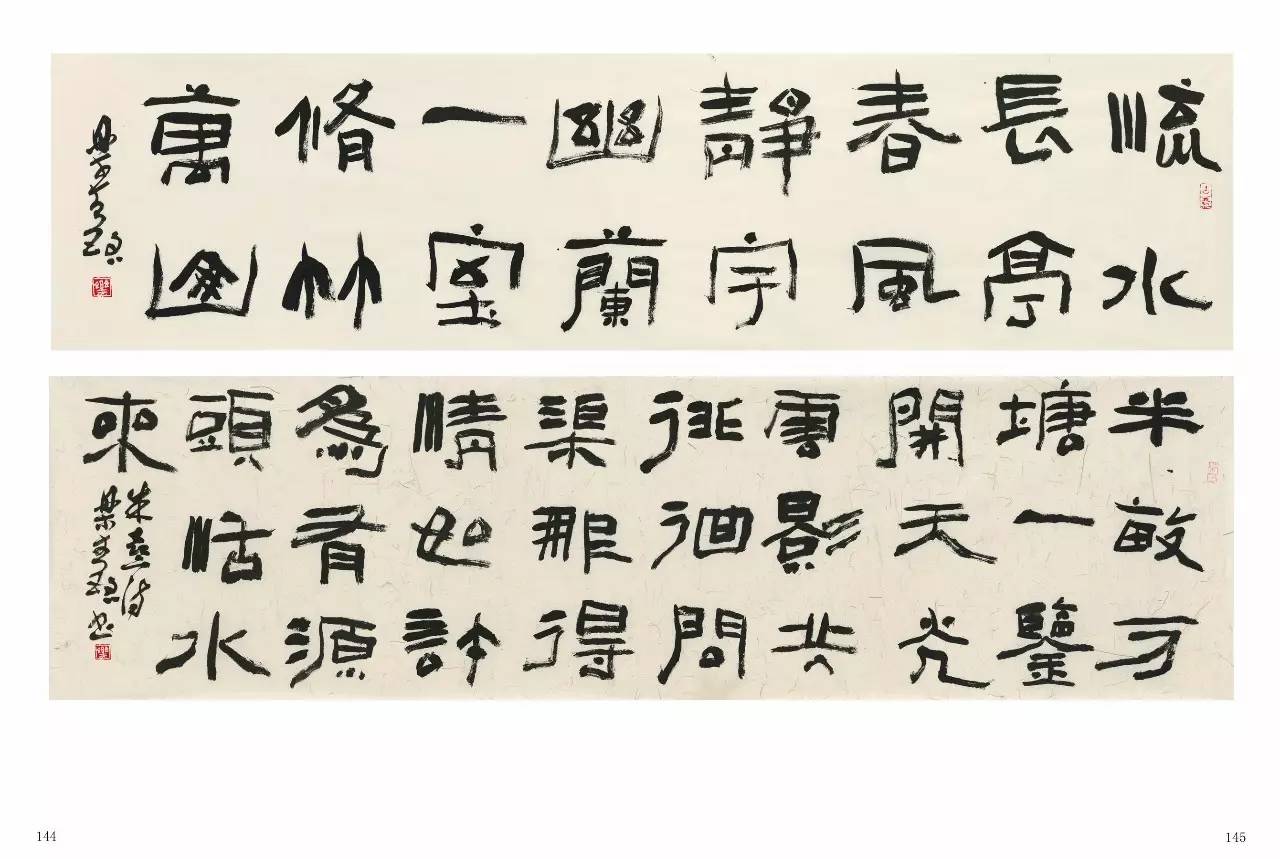 流水
長亭
春風
靜宇
幽蘭
一室
脩竹
萬山
半畝方
塘一鑒
開天光
雲影共
徘徊問
渠那得
清如許
爲有源
頭活水
來
朱熹詩
144
145